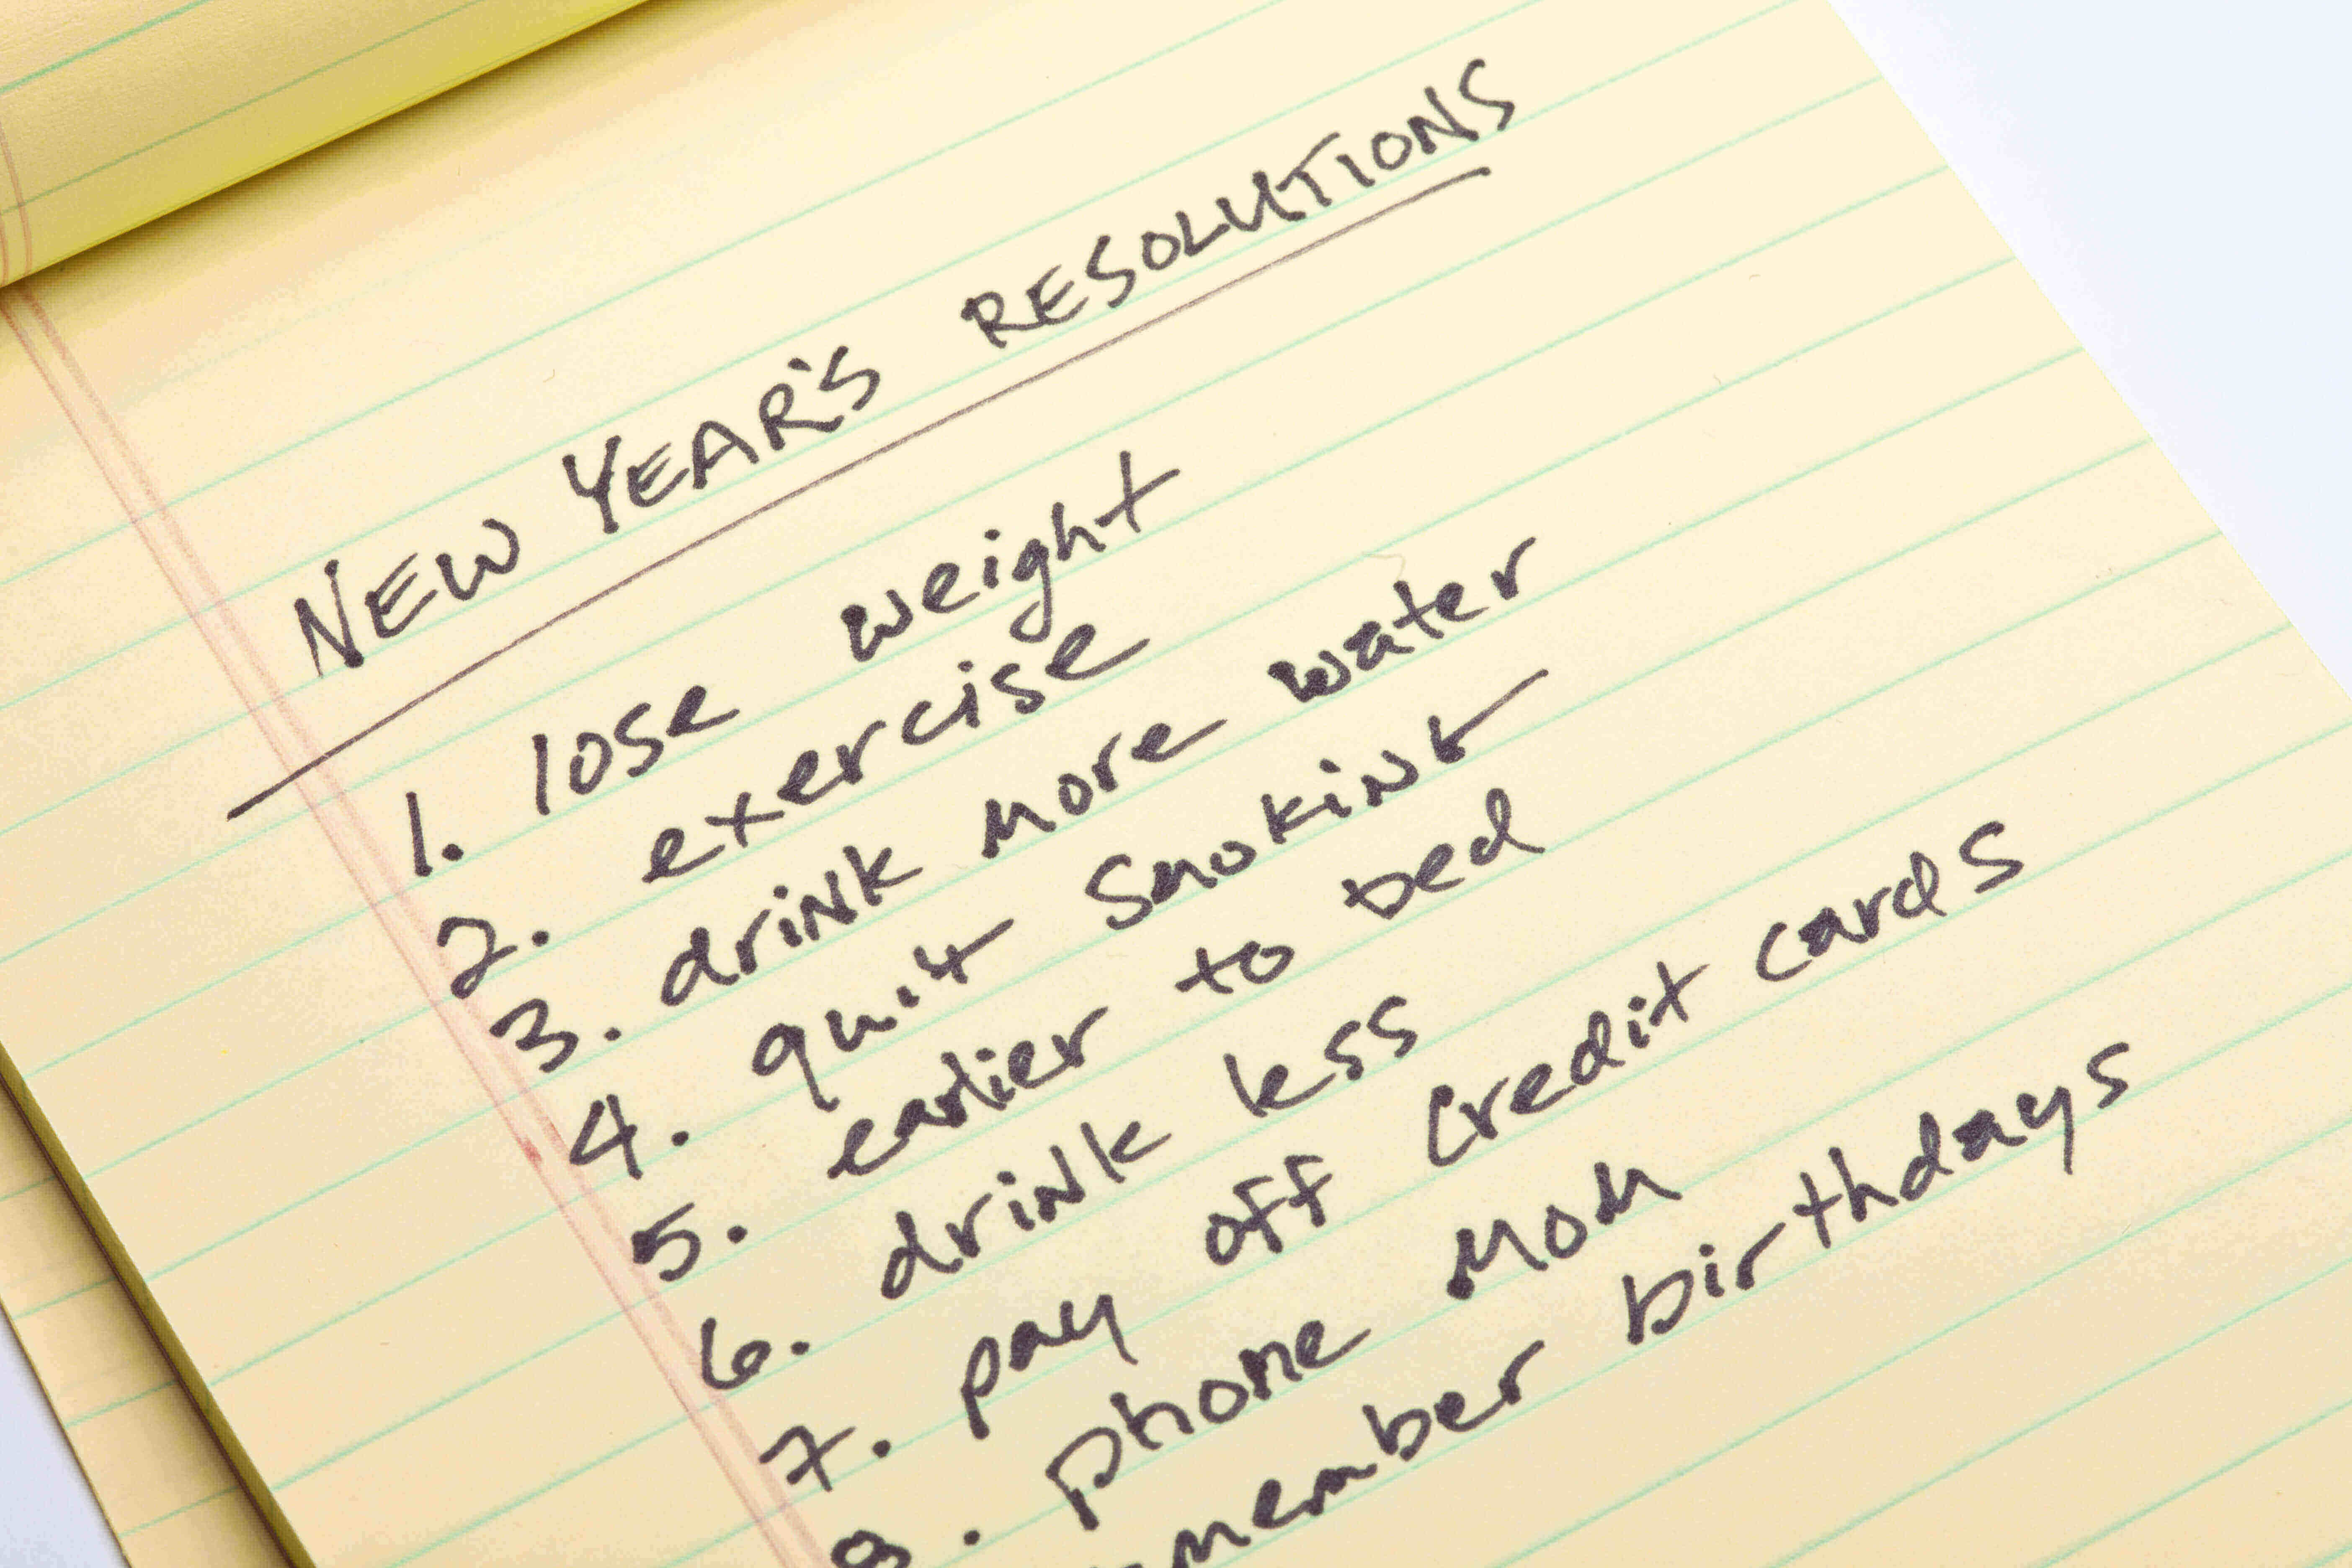 NEW YEAR'S RESOLUTIONS
1. lose weight
2. exercise
3. drink more water
4. quit smoking
5. earlier to bed
6. drink less
7. pay off credit cards
8. phone Mom
member birthdays